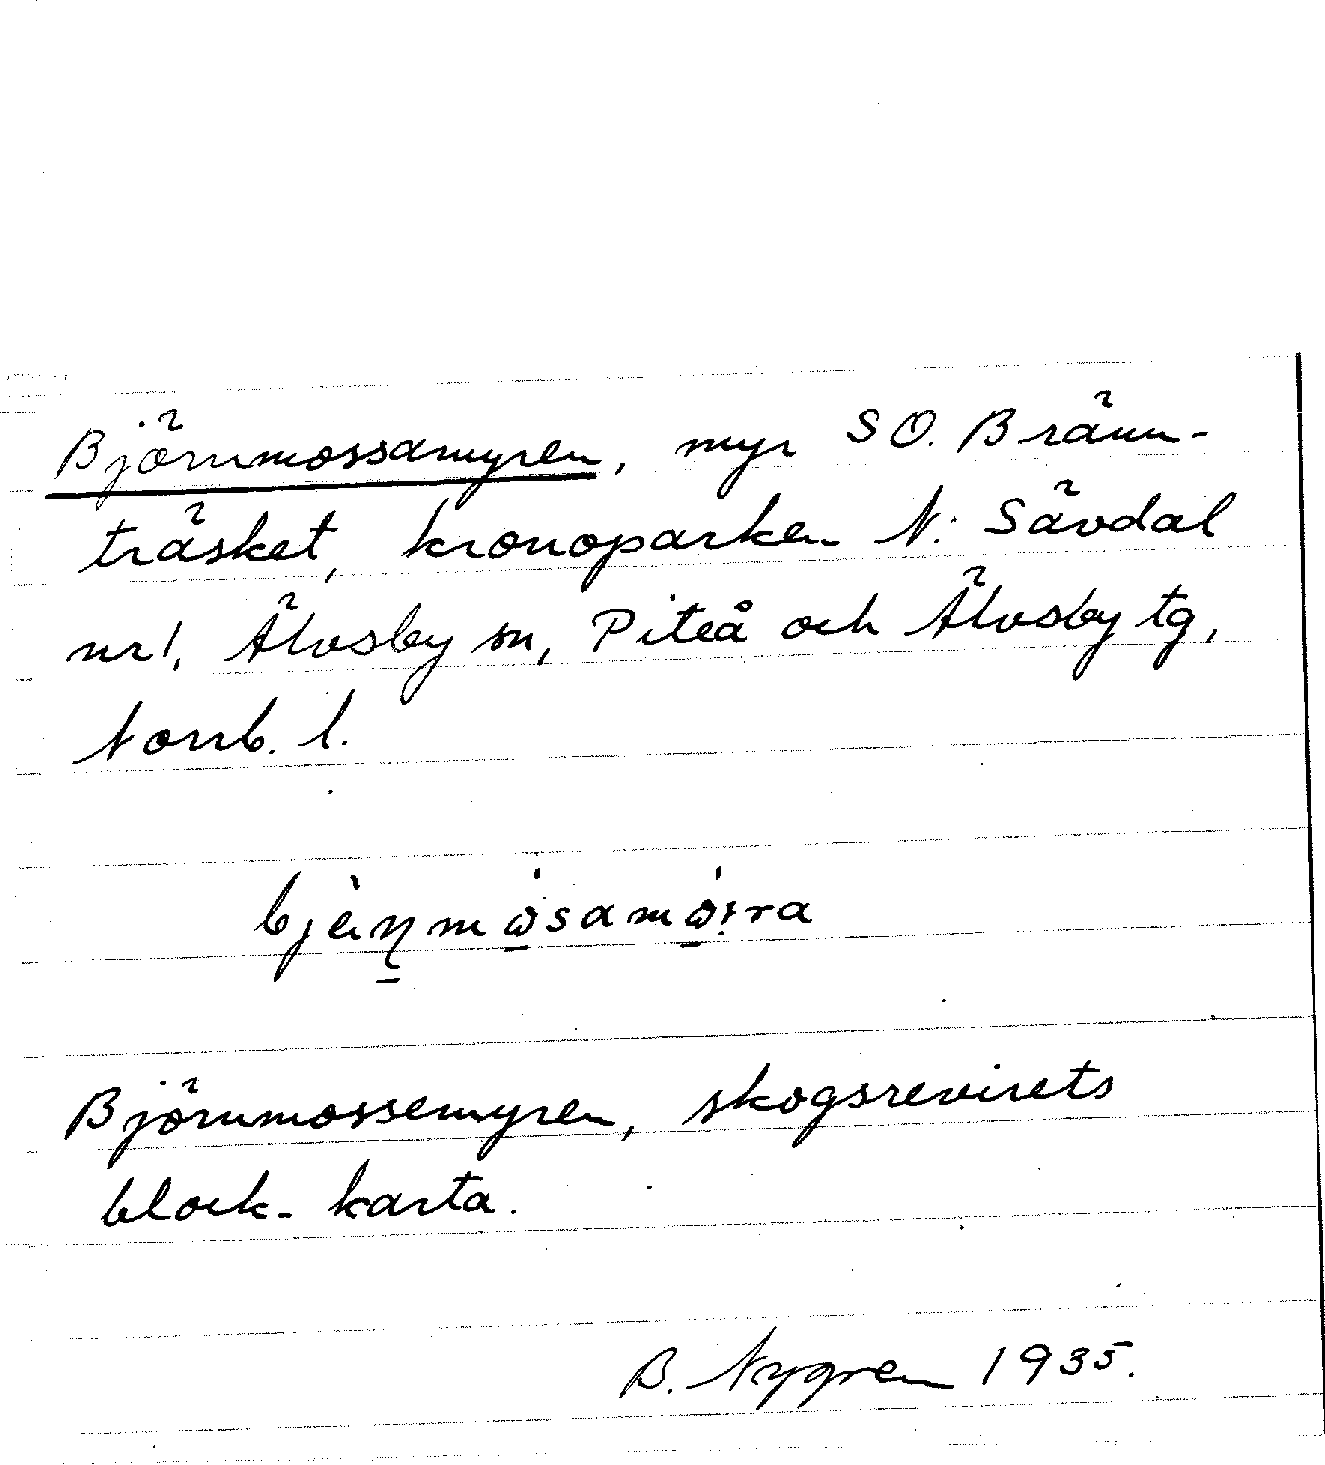 Björnmossamyren, myr SO. Bränn-
träsket, kronoparken N. Sävdal
nr 1, Älvsby sn, Piteå och Älvsby tg,
Norrb. l.
Björnmossemyren, skogsrevirets
block-karta.
B. Nygren 1935.